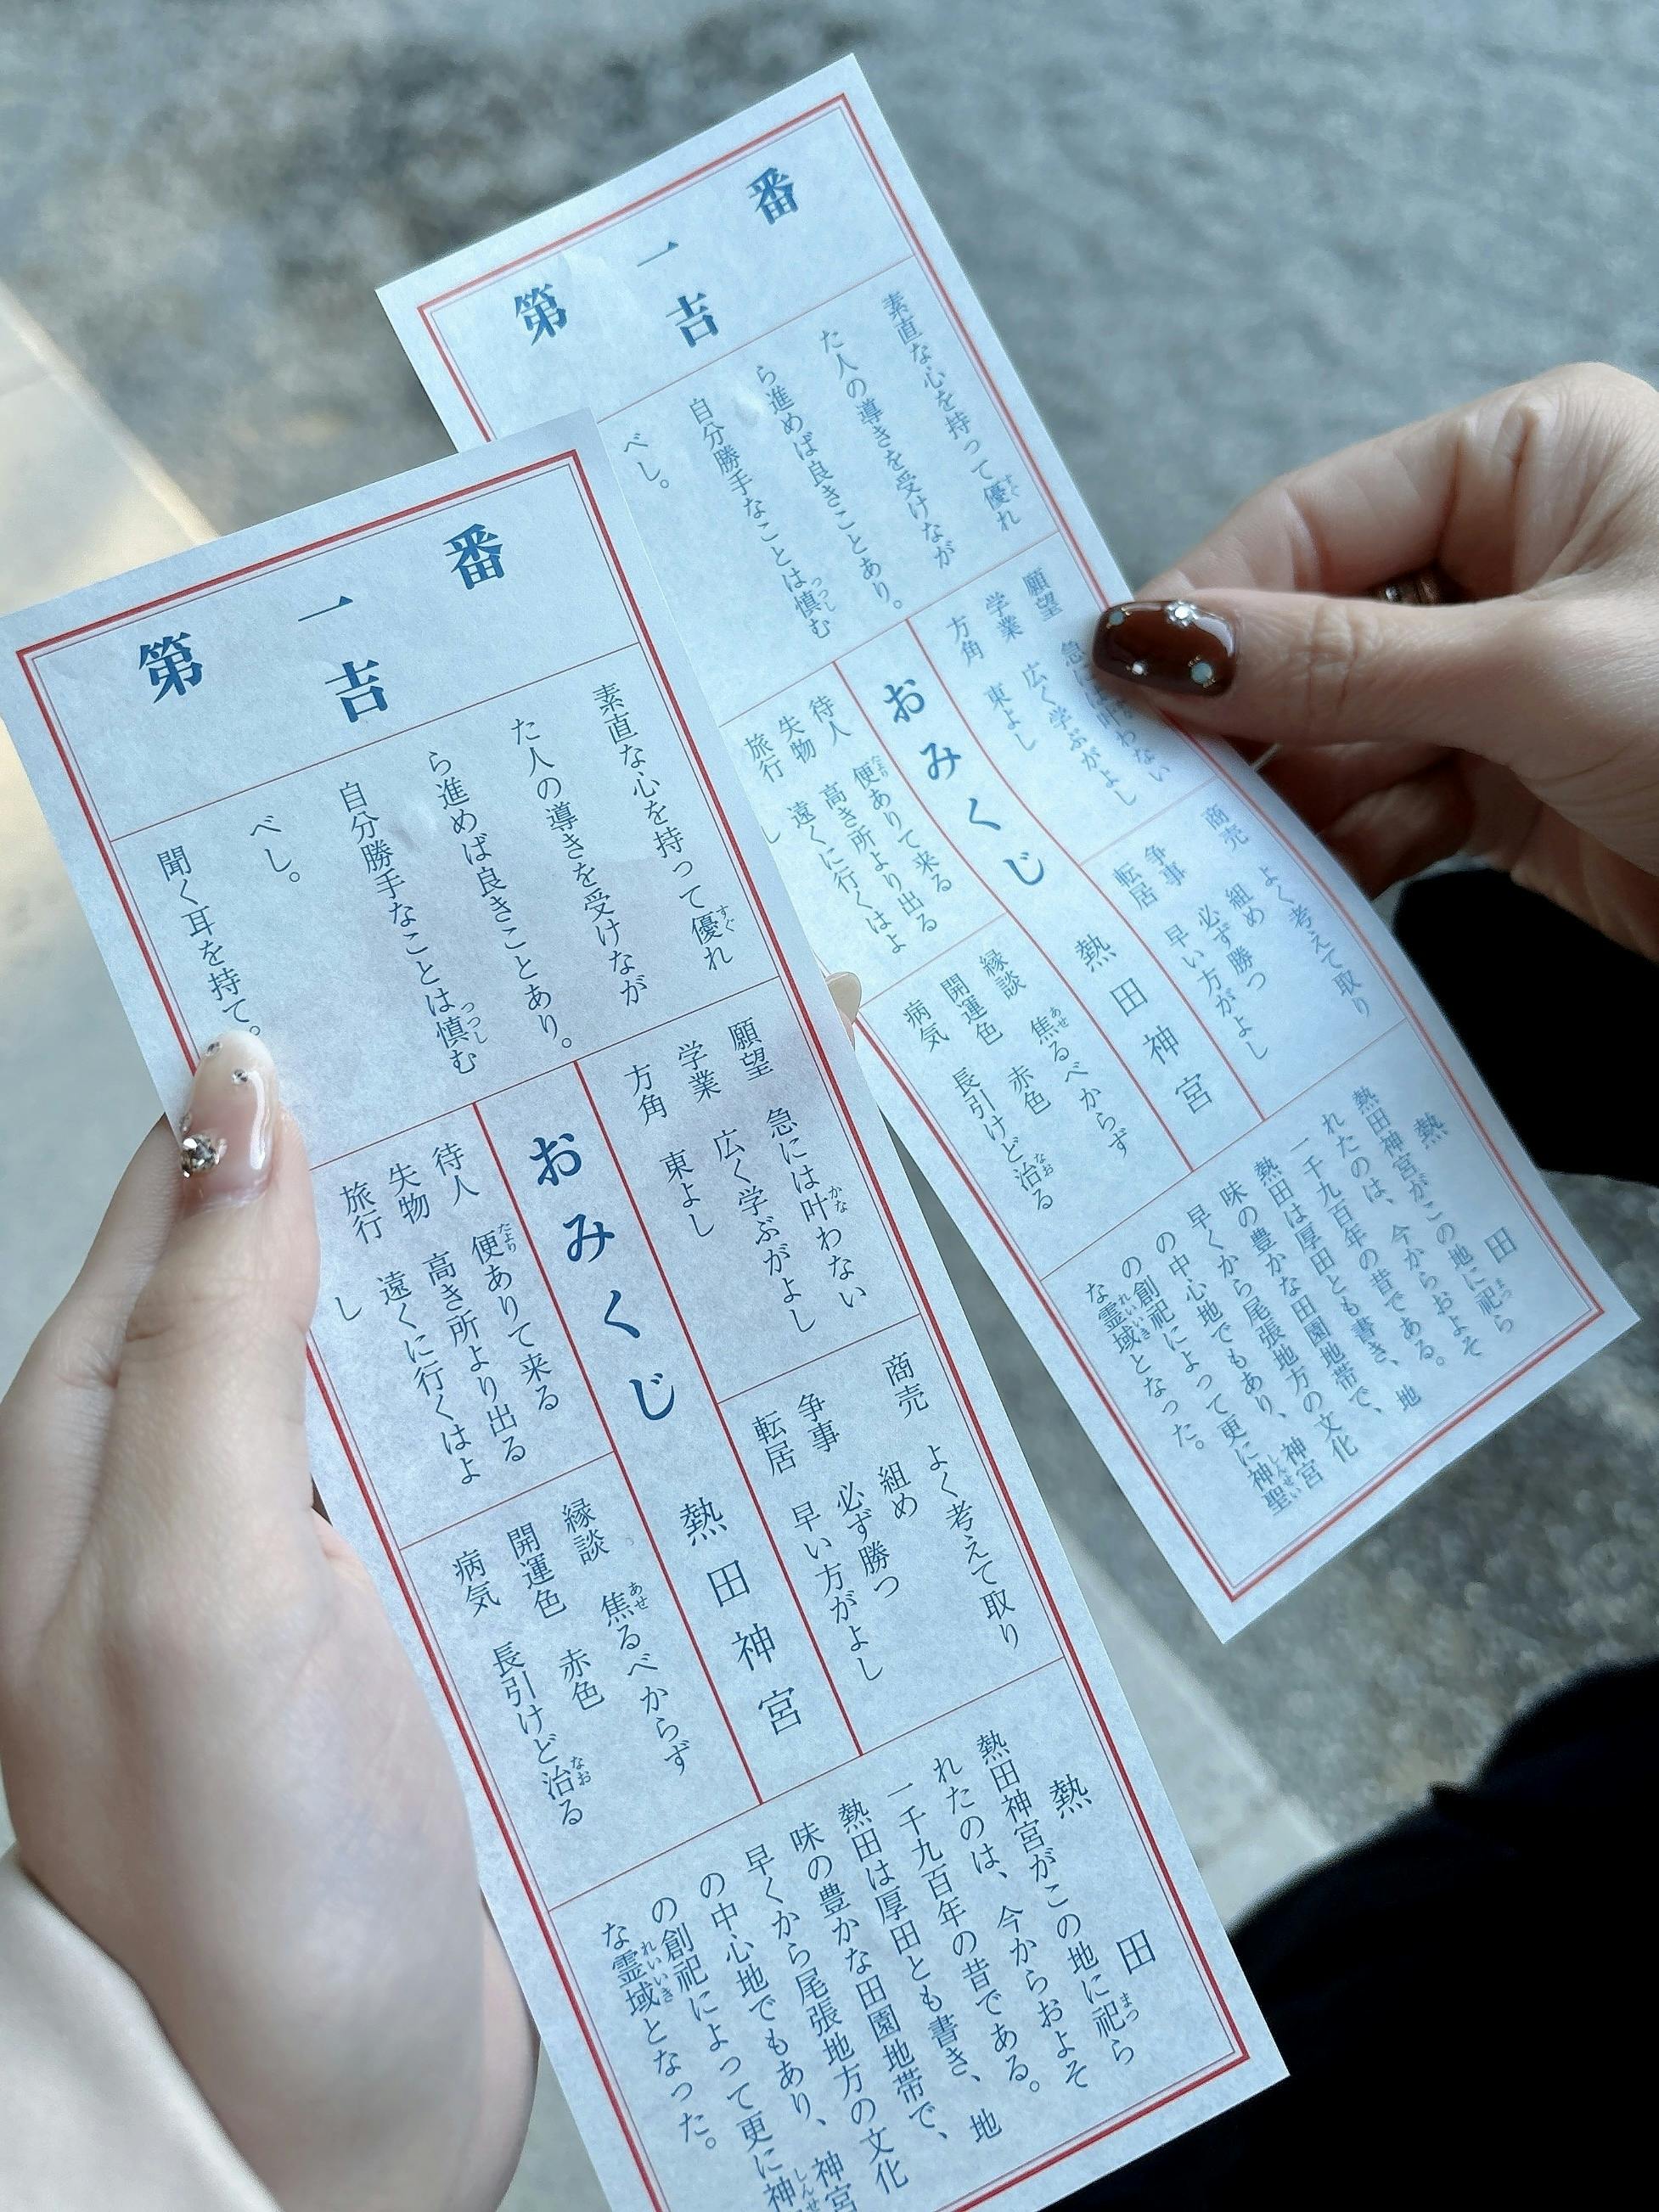 第一番
吉
素直な心を持って優れ
た人の導きを受けなが
ら進めば良きことあり。
自分勝手なことは慎む
べし。
聞く耳を持て。
願望 急には叶わない
学業 広く学ぶがよし
方角 東よし
商売 よく考えて取り
組め
争事 必ず勝つ
転居 早い方がよし
おみくじ 熱田神宮
待人 便ありて来る
失物 高き所より出る
旅行 遠くに行くはよ
し
縁談 焦るべからず
開運色 赤色
病気 長引けど治る
熱田
熱田神宮がこの地に祀ら
れたのは、今からおよそ
一千九百年の昔である。
熱田は厚田とも書き、地
味の豊かな田園地帯で、
早くから尾張地方の文化
の中心地でもあり、神宮
の創祀によって更に神
な霊域となった。
第一番
吉
素直な心を持って優れ
た人の導きを受けなが
ら進めば良きことあり。
自分勝手なことは慎む
べし。
願望 急には叶わない
学業 広く学ぶがよし
方角 東よし
商売 よく考えて取り
組め
争事 必ず勝つ
転居 早い方がよし
おみくじ 熱田神宮
待人 便ありて来る
失物 高き所より出る
旅行 遠くに行くはよ
し
縁談 焦るべからず
開運色 赤色
病気 長引けど治る
熱田
熱田神宮がこの地に祀ら
れたのは、今からおよそ
一千九百年の昔である。
熱田は厚田とも書き、地
味の豊かな田園地帯で、
早くから尾張地方の文化
の中心地でもあり、神宮
の創祀によって更に神聖
な霊域となった。